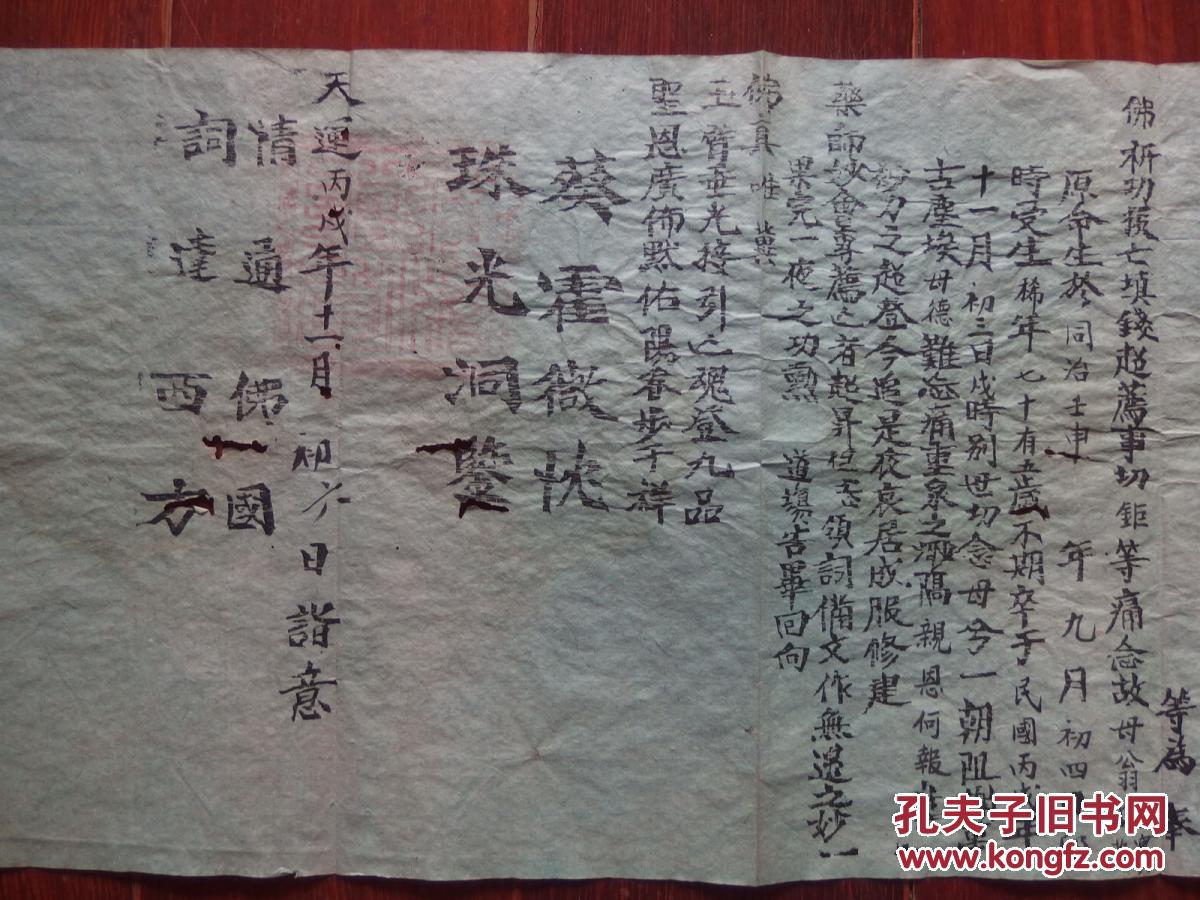 等為
奉
佛祈功援亡填錢超薦事切鉅等痛念故母翁
原命生於同治壬申年九月初四
時受生稀年七十有五歲不期卒于民國丙戌年
十一月初三日戌時別世切念母兮一朝阻
古塵埃母德難忘痛重泉之灑隔親恩何報
妙力之超登今追是夜哀居成服修建
藥師妙會尊薦亡者超昇但恭領詞備文作無邊之妙一
果完一夜之功勳 道場告畢回向
佛真唯冀
玉臂垂光接引亡魂登九品
聖恩廣佈默佑陽春步千祥
葵霍微忱
珠光洞鑒
天運丙戌年十一月初六日誥意
情通佛國
詞達西方
孔夫子旧书网
www.kongfz.com